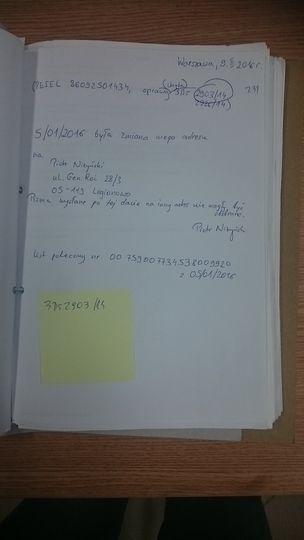 Warszawa, 9. 2016 r.
PESEL 86092501434, sprawy 2903/14
5/01/2016 była zmiana mego adresu
na Piotr Niżyński
ul. Gen. Roi 28/3
05-119 Legionowo
Pisma wysłane po tej dacie na inny adres nie mogły być
Piotr Niżyński
List polecony nr 00 759007734538009920
z 05/01/2016
2903/14